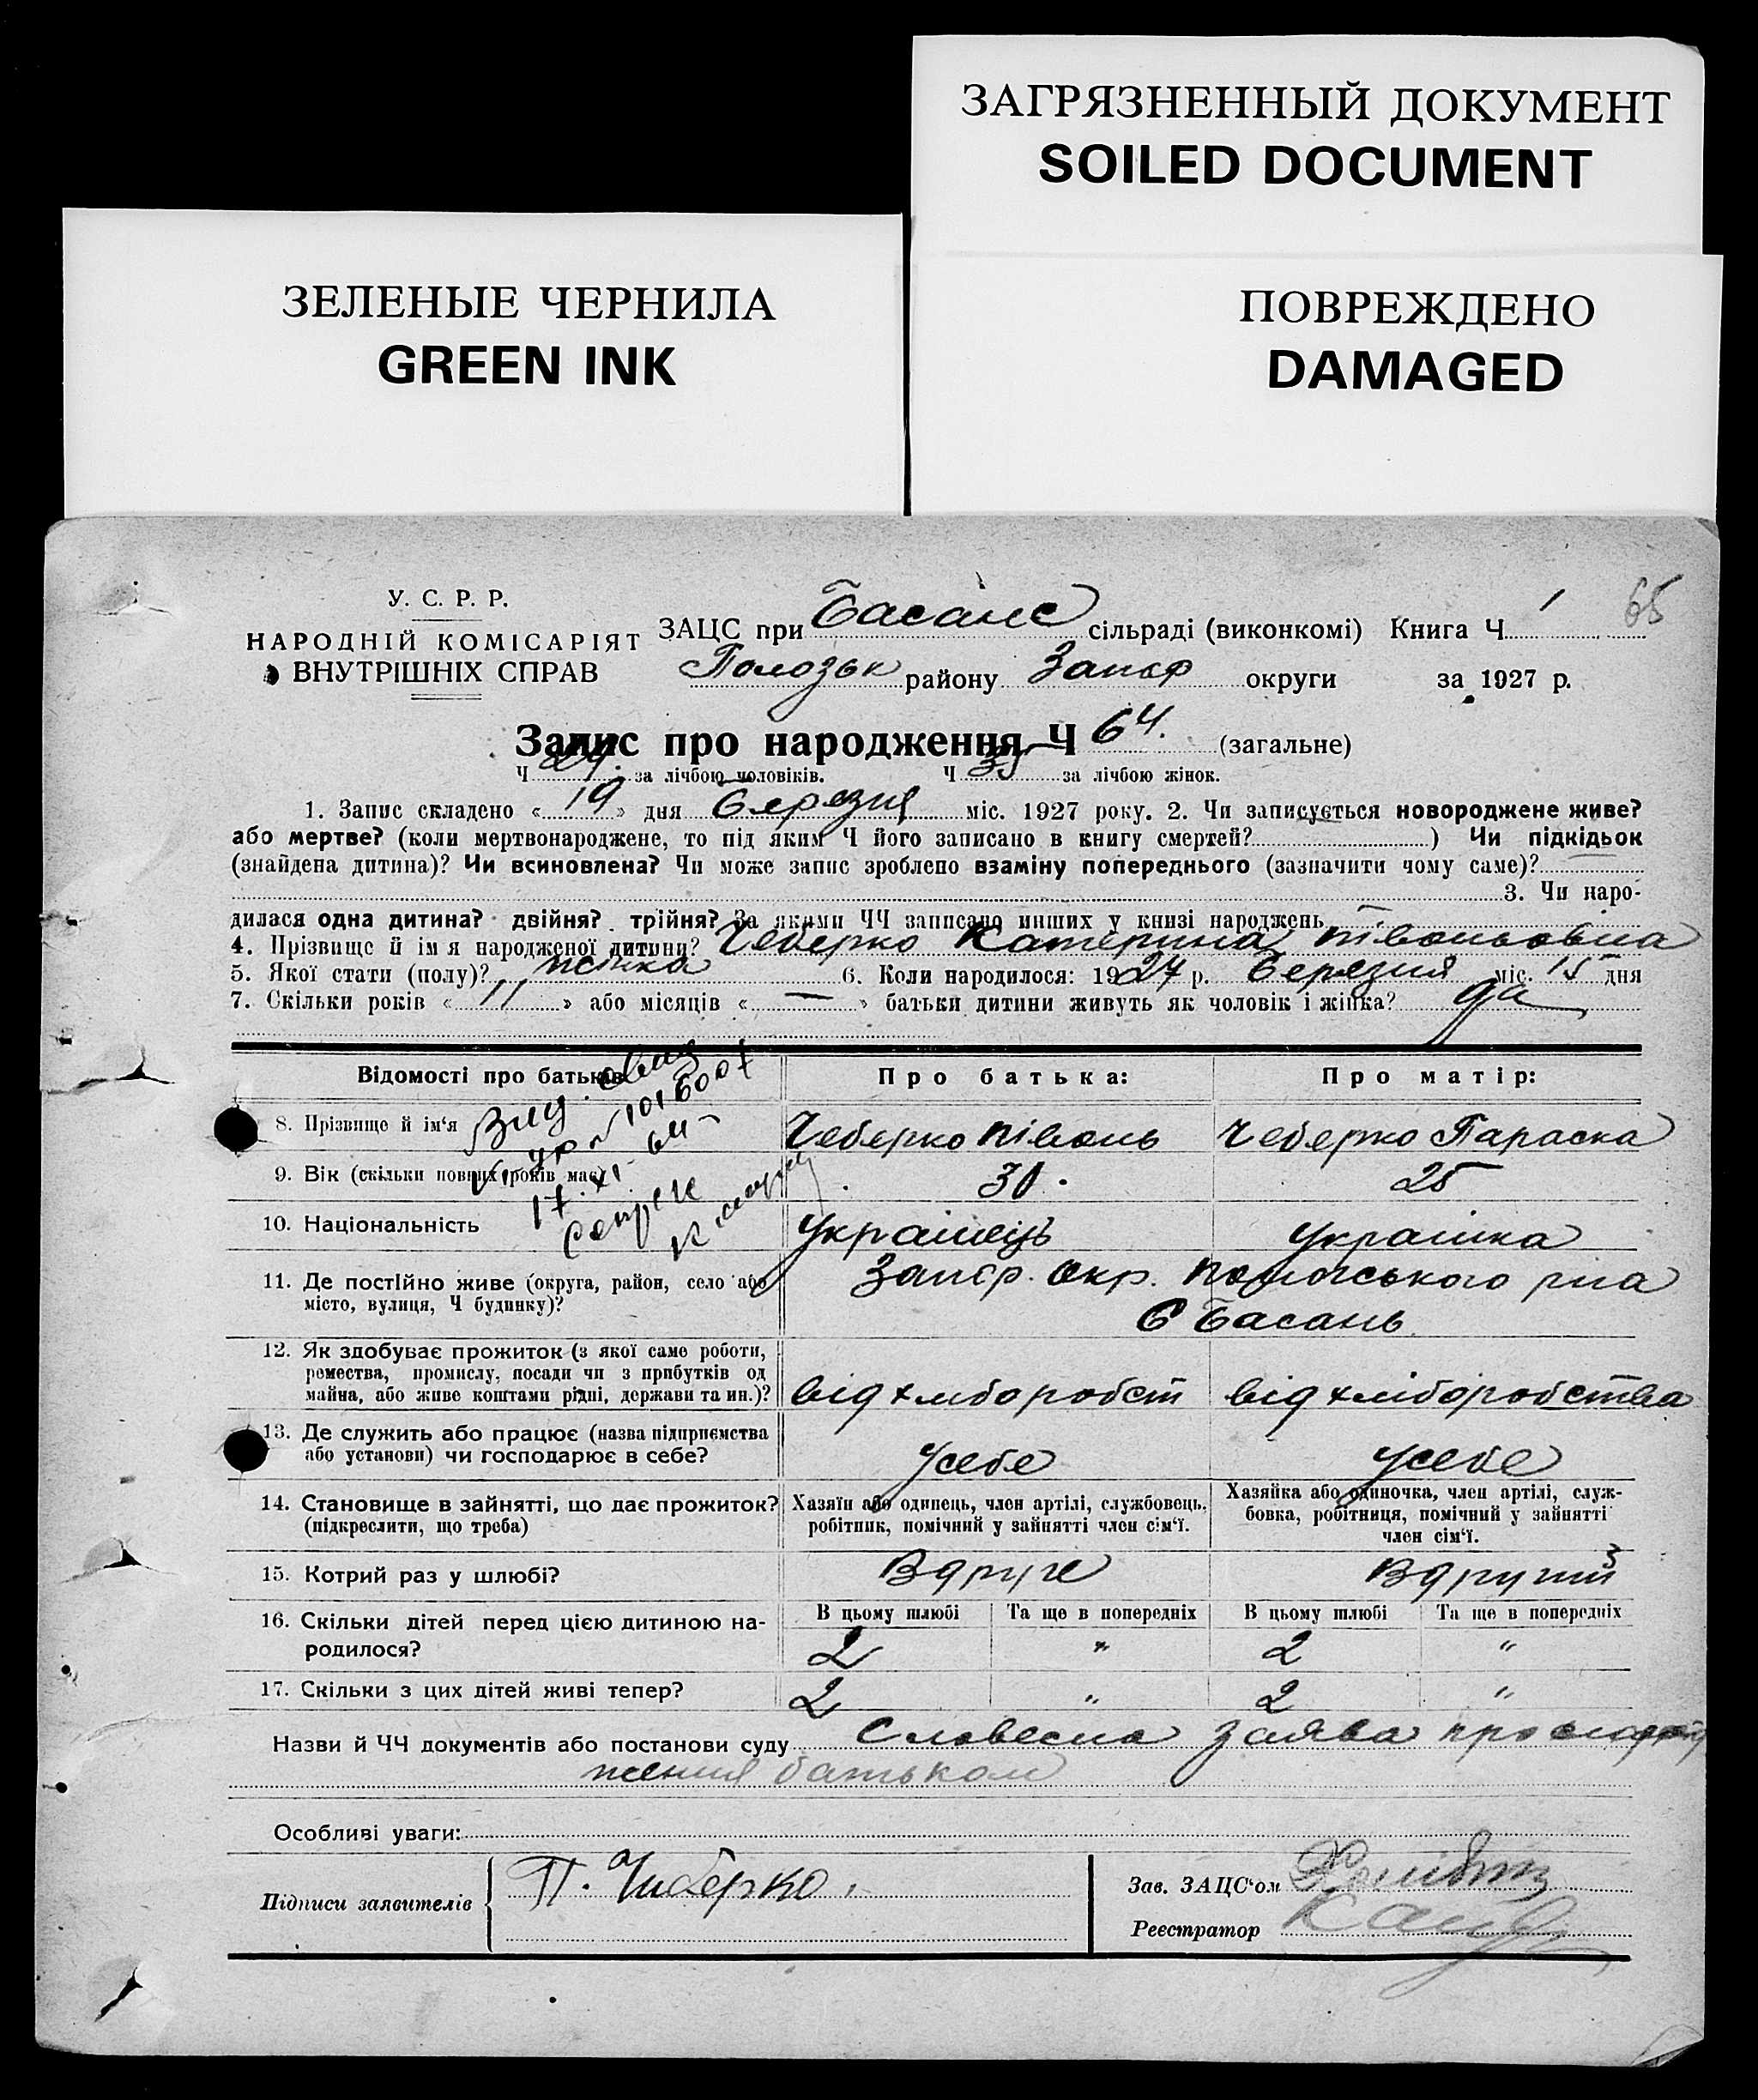 ЗАГРЯЗНЕННЫЙ ДОКУМЕНТ
SOILED DOCUMENT
ЗЕЛЕНЫЕ ЧЕРНИЛА
GREEN INK
ПОВРЕЖДЕНО
DAMAGED
У. С. Р. Р.
НАРОДНІЙ КОМІСАРІЯТ
ВНУТРІШНІХ СПРАВ
65
ЗАЦС при Басанс сільраді (виконкомі) Книга Ч 1
Полозьк району Запор округи за 1927 р.
Запис про народження Ч 64. (загальне)
Ч 29. за лічбою чоловіків. Ч 35 за лічбою жінок.
1. Запис складено « 19 » дня Березня міс. 1927 року. 2. Чи записується новороджене живе?
або мертве? (коли мертвонароджене, то під яким Ч його записано в книгу смертей? ) Чи підкідьок
(знайдена дитина)? Чи всиновлена? Чи може запис зроблено взаміну попереднього (зазначити чому саме)?
3. Чи наро-
дилася одна дитина? двійня? трійня? За якими ЧЧ записано инших у книзі народжень —
4. Прізвище й ім я народженої дитини? Чеберко Катерина Півоньовна
5. Якої стати (полу)? жінка 6. Коли народилося: 1927 р. Березня міс. 15 дня
7. Скільки років « 11 » або місяців « — » батьки дитини живуть як чоловік і жінка? да
Відомості про батьків Про батька: Про матір:
8. Прізвище й ім'я Чеберко Півонь Чеберко Параска
9. Вік (скільки повних років має) 30. 25
17. XI. 64
10. Національність Українець Українка
11. Де постійно живе (округа, район, село або Запор. окр. Пологського рна
місто, вулиця, Ч будинку)? С Басань
12. Як здобуває прожиток (з якої саме роботи,
ремества, промислу, посади чи з прибутків од
майна, або живе коштами рідні, держави та ин.)? від хліборобст від хліборобства
13. Де служить або працює (назва підприємства
або установи) чи господарює в себе? Усебе Усебе
14. Становище в зайнятті, що дає прожиток? Хазяїн або одинець, член артілі, службовець, Хазяйка або одиночка, член артілі, служ-
(підкреслити, що треба) робітник, помічний у зайнятті член сім'ї. бовка, робітниця, помічний у зайнятті
член сім'ї.
15. Котрий раз у шлюбі? Вдруге
16. Скільки дітей перед цією дитиною на- В цьому шлюбі Та ще в попередніх В цьому шлюбі Та ще в попередніх
родилося? 2 " 2 "
17. Скільки з цих дітей живі тепер? 2 " 2 "
Назви й ЧЧ документів або постанови суду Словесна заява про
ження батьком
Особливі уваги:
Підписи заявителів П. Чиберко.
Зав. ЗАЦС'ом
Реєстратор